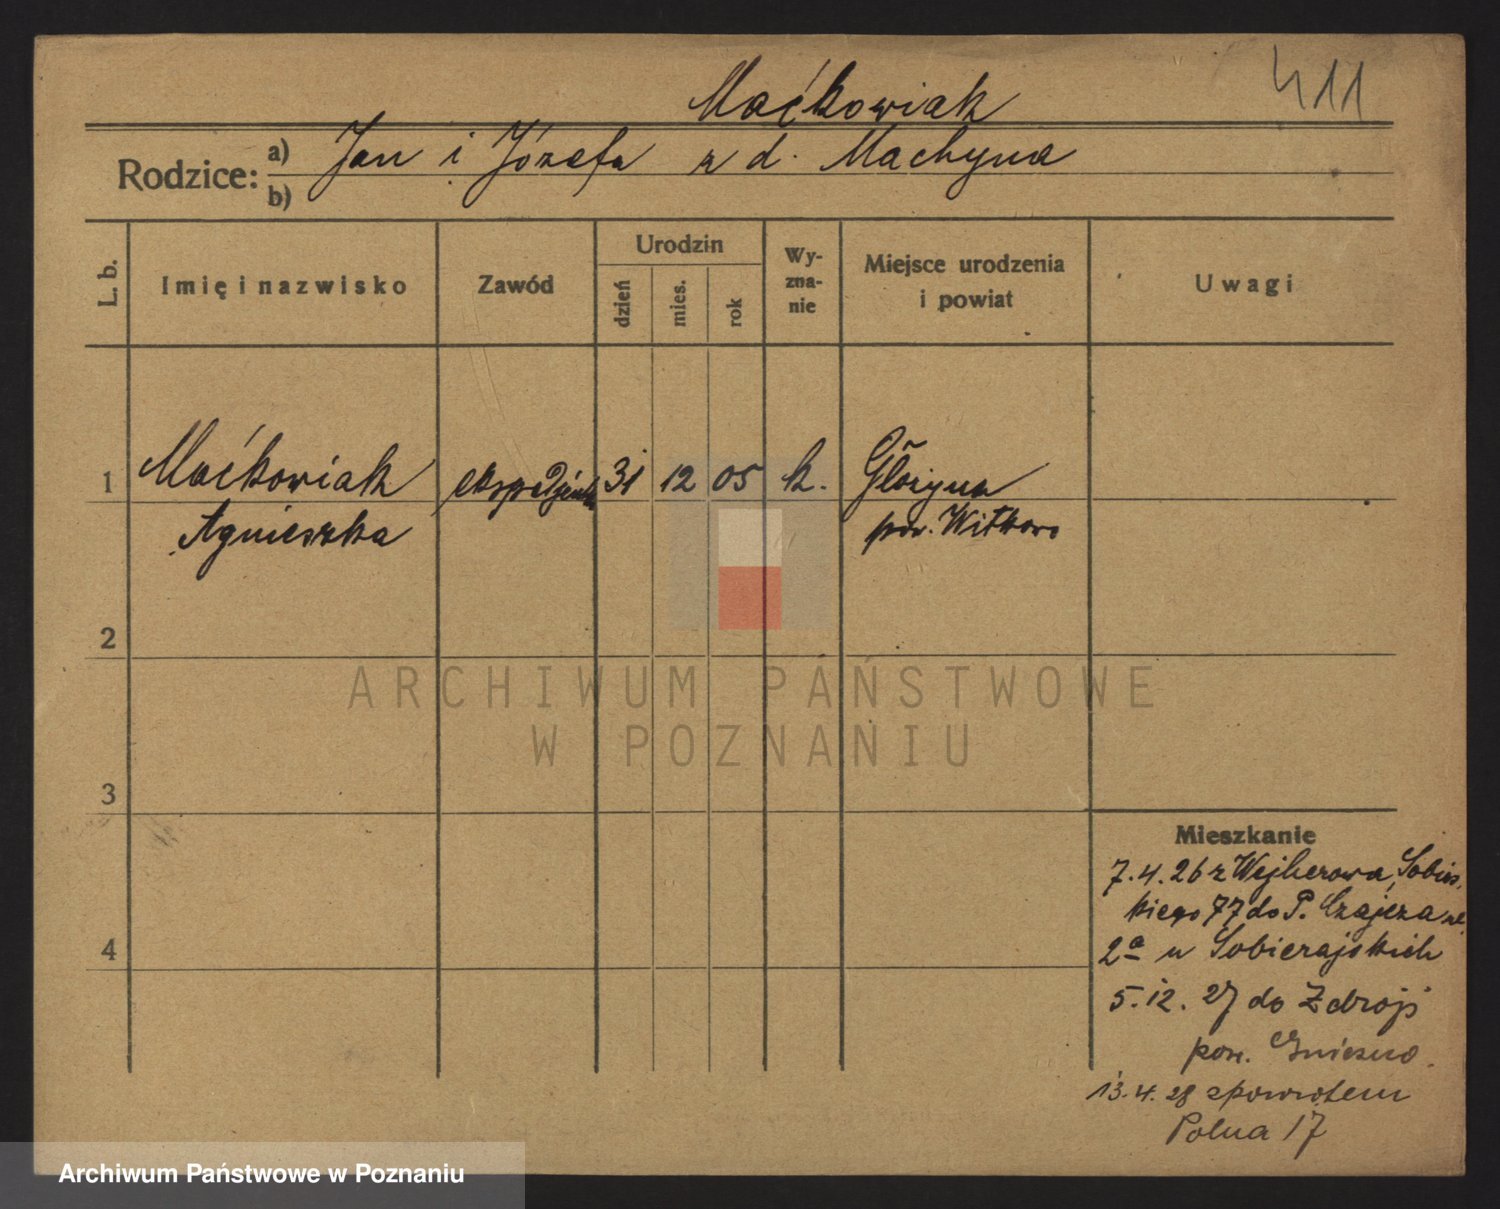 411
Maćkowiak
Rodzice: a) Jan i Józefa z d. Machyna
b)
L. b. Imię i nazwisko Zawód Urodzin dzień mies. rok Wy-zna-nie Miejsce urodzenia i powiat Uwagi
1 Maćkowiak ekspedjentka 31 12 05 k.
Agnieszka pow. Witkowo
2
3
4
Mieszkanie
7.4.26 z Wejherowa, Sobies-
kiego 77 do P.
2a u Sobierajskich
5.12.27 do Zdroji
pow. Gniezno.
13.4.28 spowrotem
Polna 17
ARCHIWUM PAŃSTWOWE
W POZNANIU
Archiwum Państwowe w Poznaniu